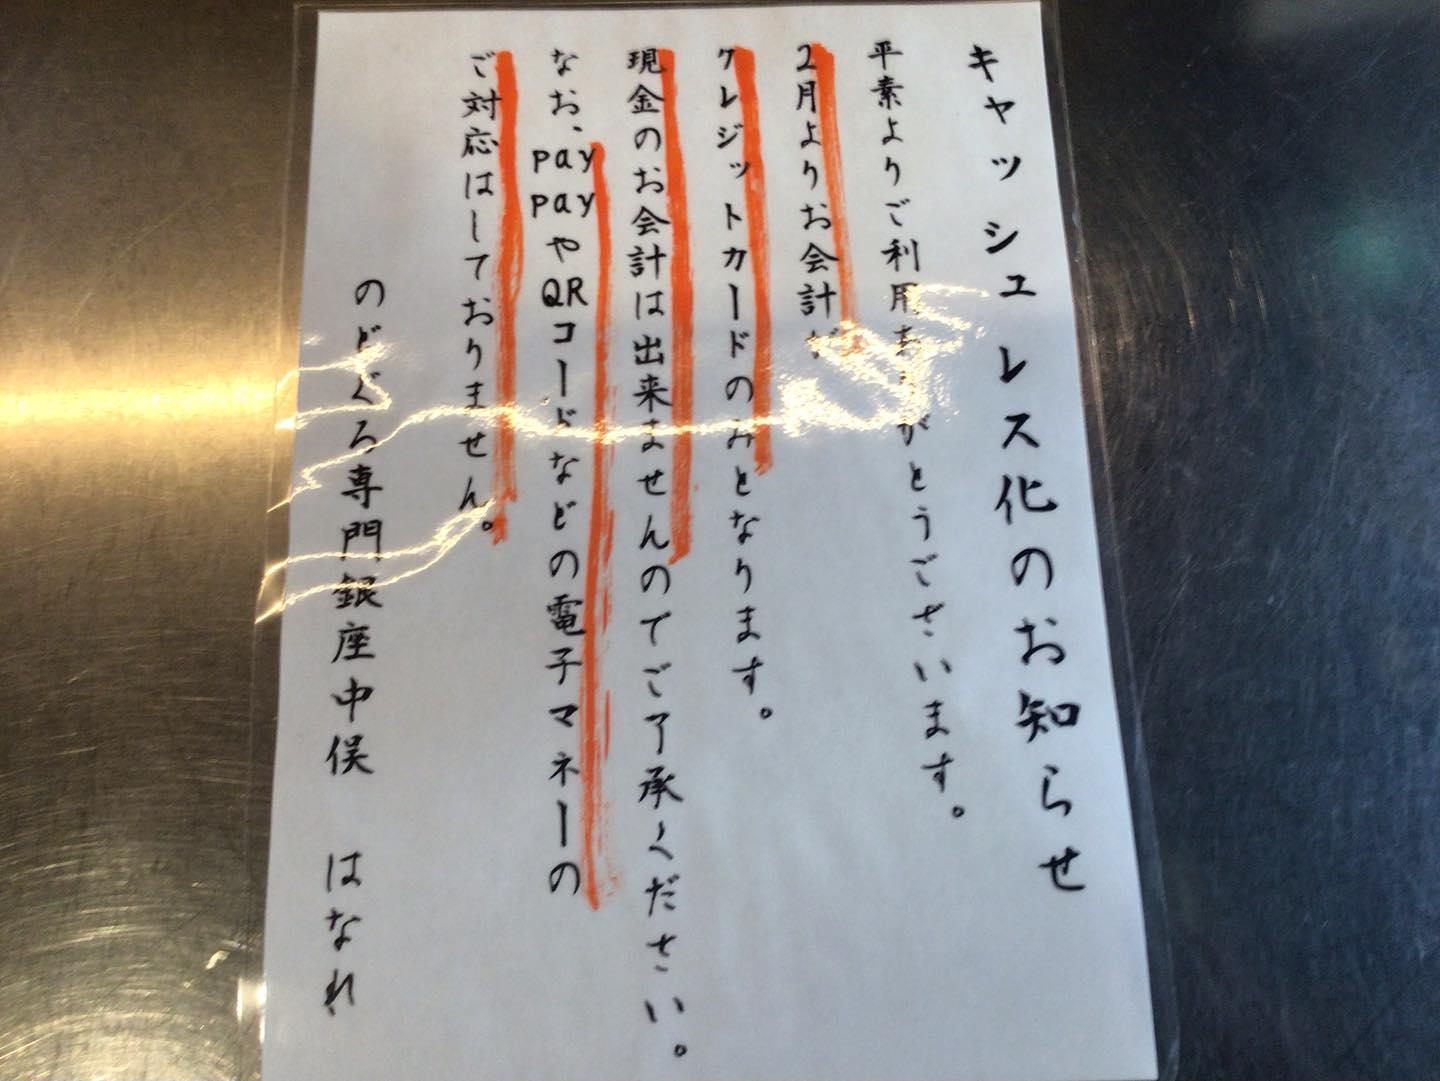 キャッシュレス化のお知らせ
平素よりご利用ありがとうございます。
2月よりお会計が
クレジットカードのみとなります。
現金のお会計は出来ませんのでご了承ください。
なお、pay payやQRコードなどの電子マネーの
ご対応はしておりません。
のどぐろ専門銀座中俣 はなれ